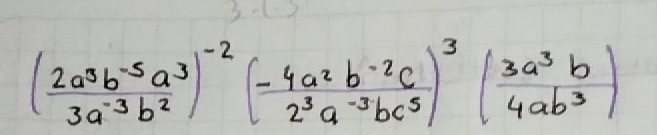 3-(-3
(2a³b⁻⁵a³ / 3a⁻³b²)⁻² (-4a²b⁻²c / 2³a⁻³bc⁵)³ (3a³b / 4ab³)